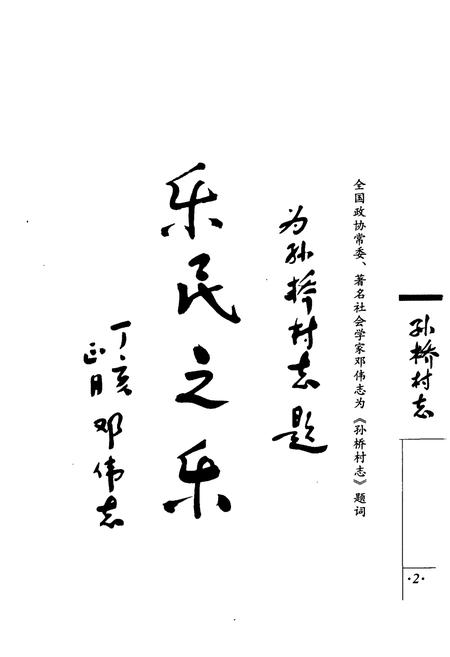 孙桥村志
·2·
全国政协常委、著名社会学家邓伟志为《孙桥村志》题词
为孙桥村志题
乐民之乐
丁亥
正月
邓伟志